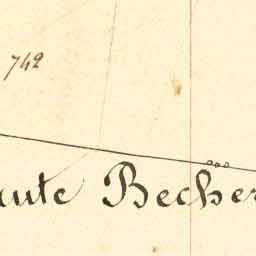 742
aute Becher